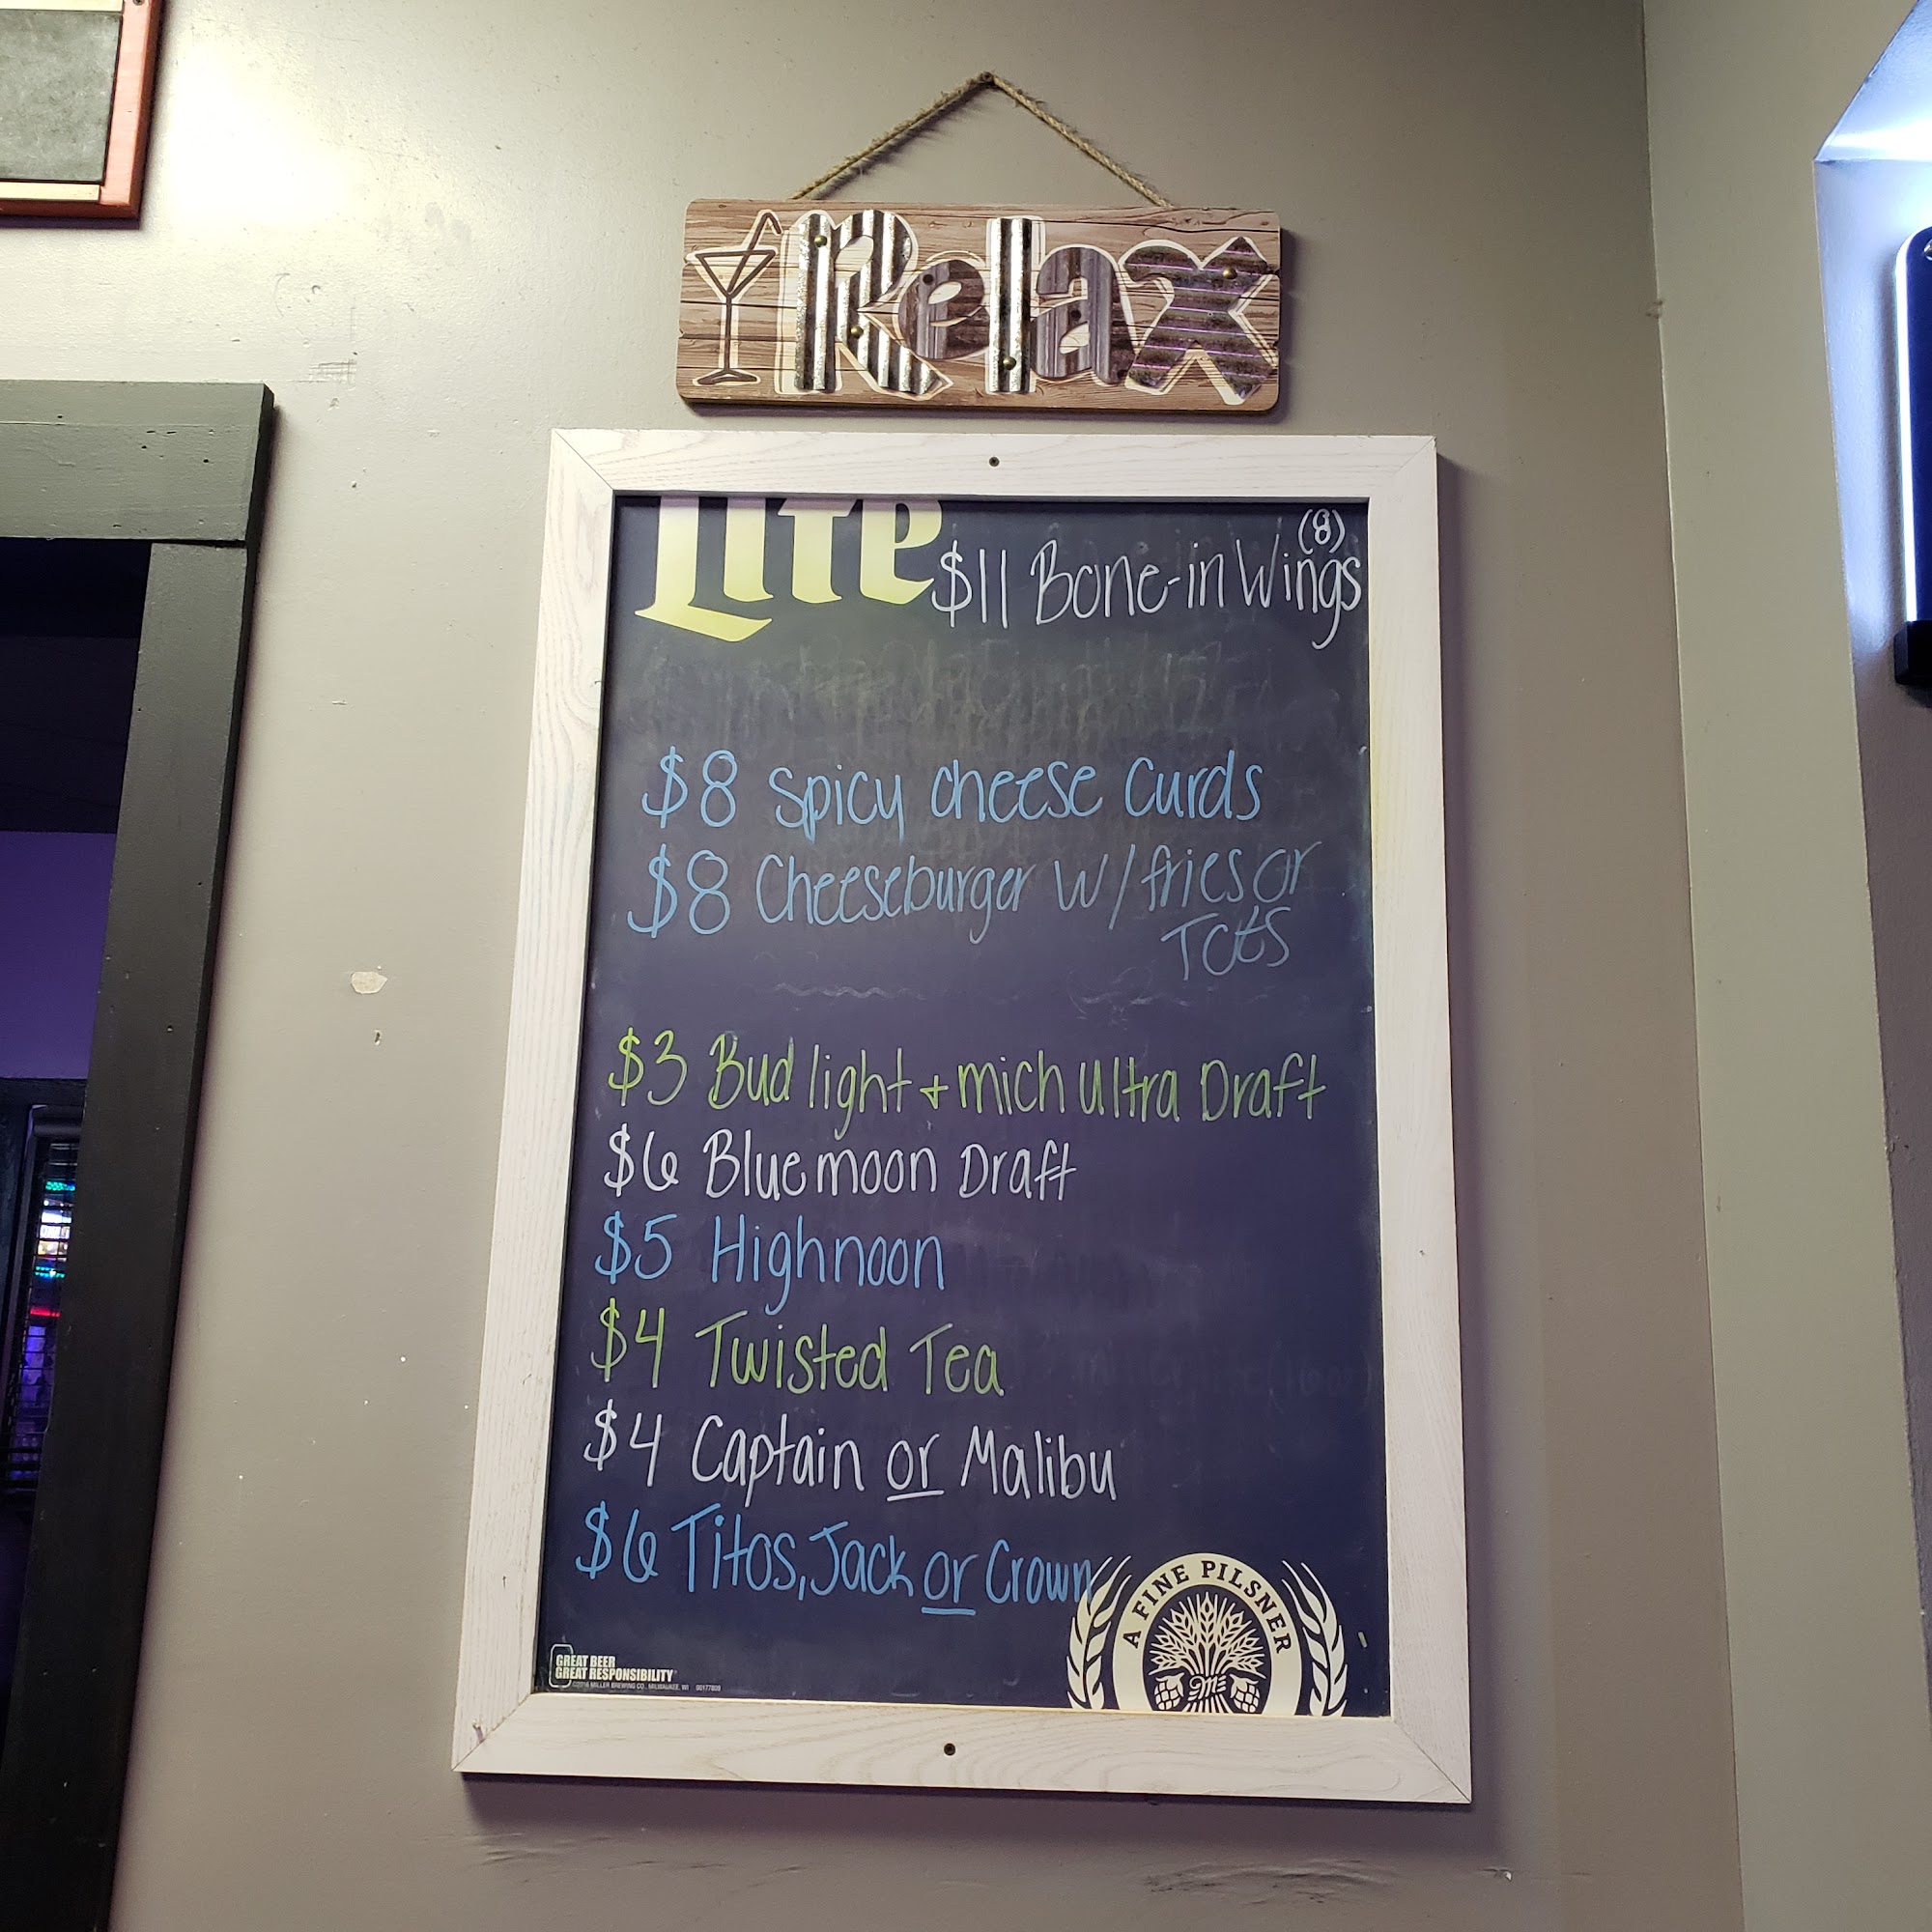 Relax
Lite
(8)
$11 Bone-in Wings
$8 Spicy cheese Curds
$8 Cheeseburger W/ fries or
TOtS
$3 Bud light + mich Ultra Draft
$6 Blue moon Draft
$5 Highnoon
$4 Twisted Tea
$4 Captain or Malibu
$6 Titos, Jack or Crown
A FINE PILSNER
GREAT BEER
GREAT RESPONSIBILITY